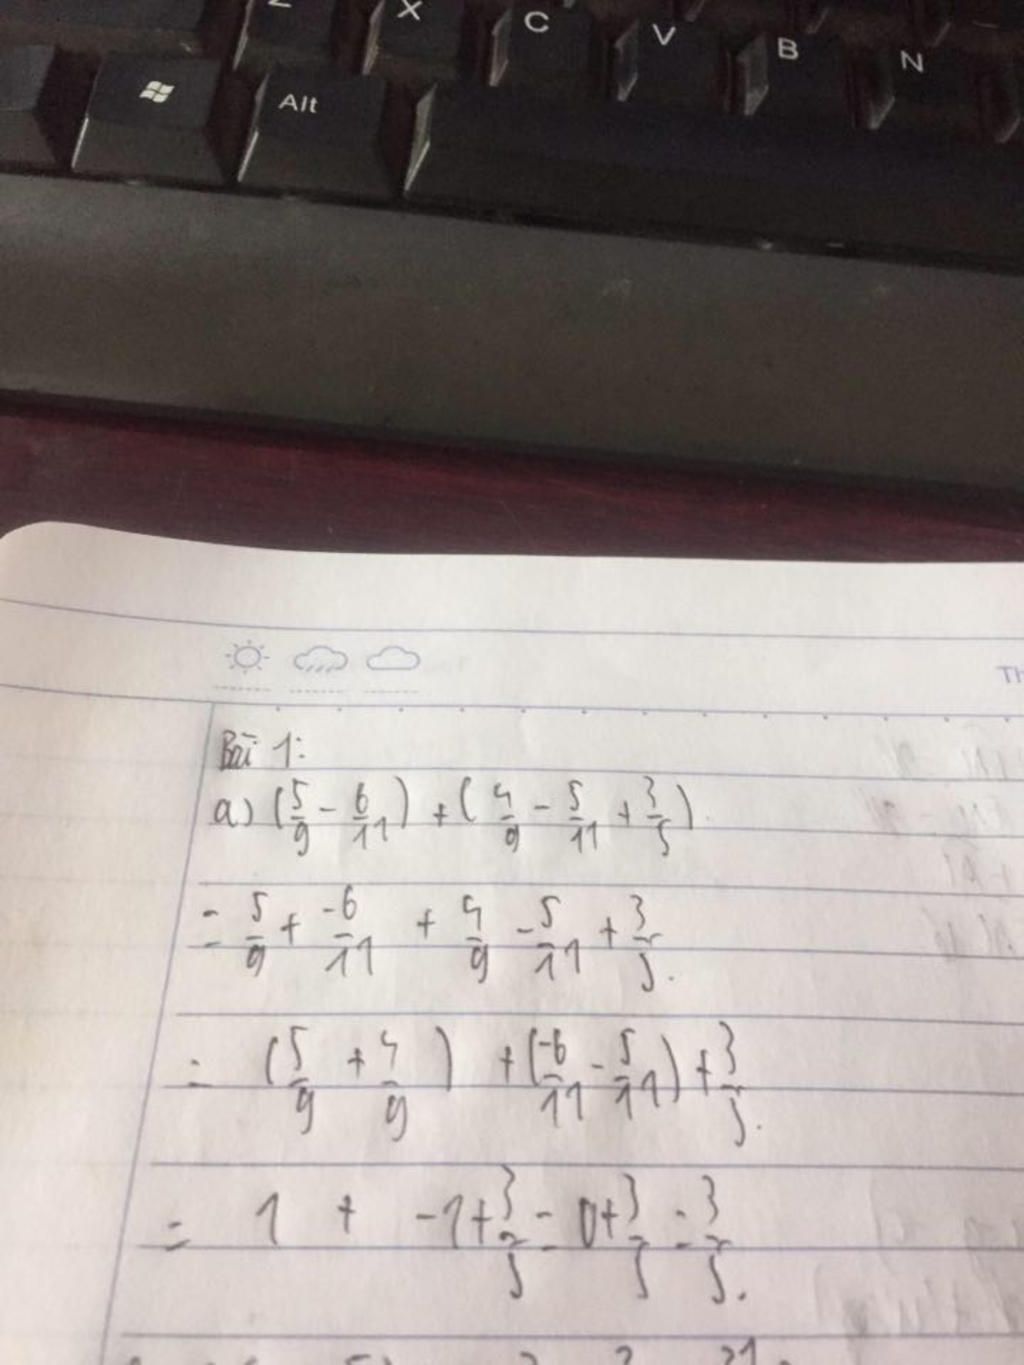 Z X C V B N
Alt
Th
Bài 1:
a) (5/9 - 6/11) + (4/9 - 5/11 + 3/5).
= 5/9 + -6/11 + 4/9 - 5/11 + 3/5.
= (5/9 + 4/9) + (-6/11 - 5/11) + 3/5.
= 1 + -1 + 3/5 = 0 + 3/5 = 3/5.